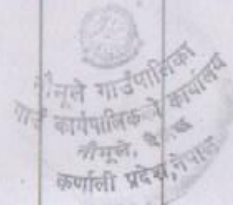 नौमूले गाउँपालिका
गाउँ कार्यपालिकाको कार्यालय
नौमूले,
कर्णाली प्रदेश, नेपाल